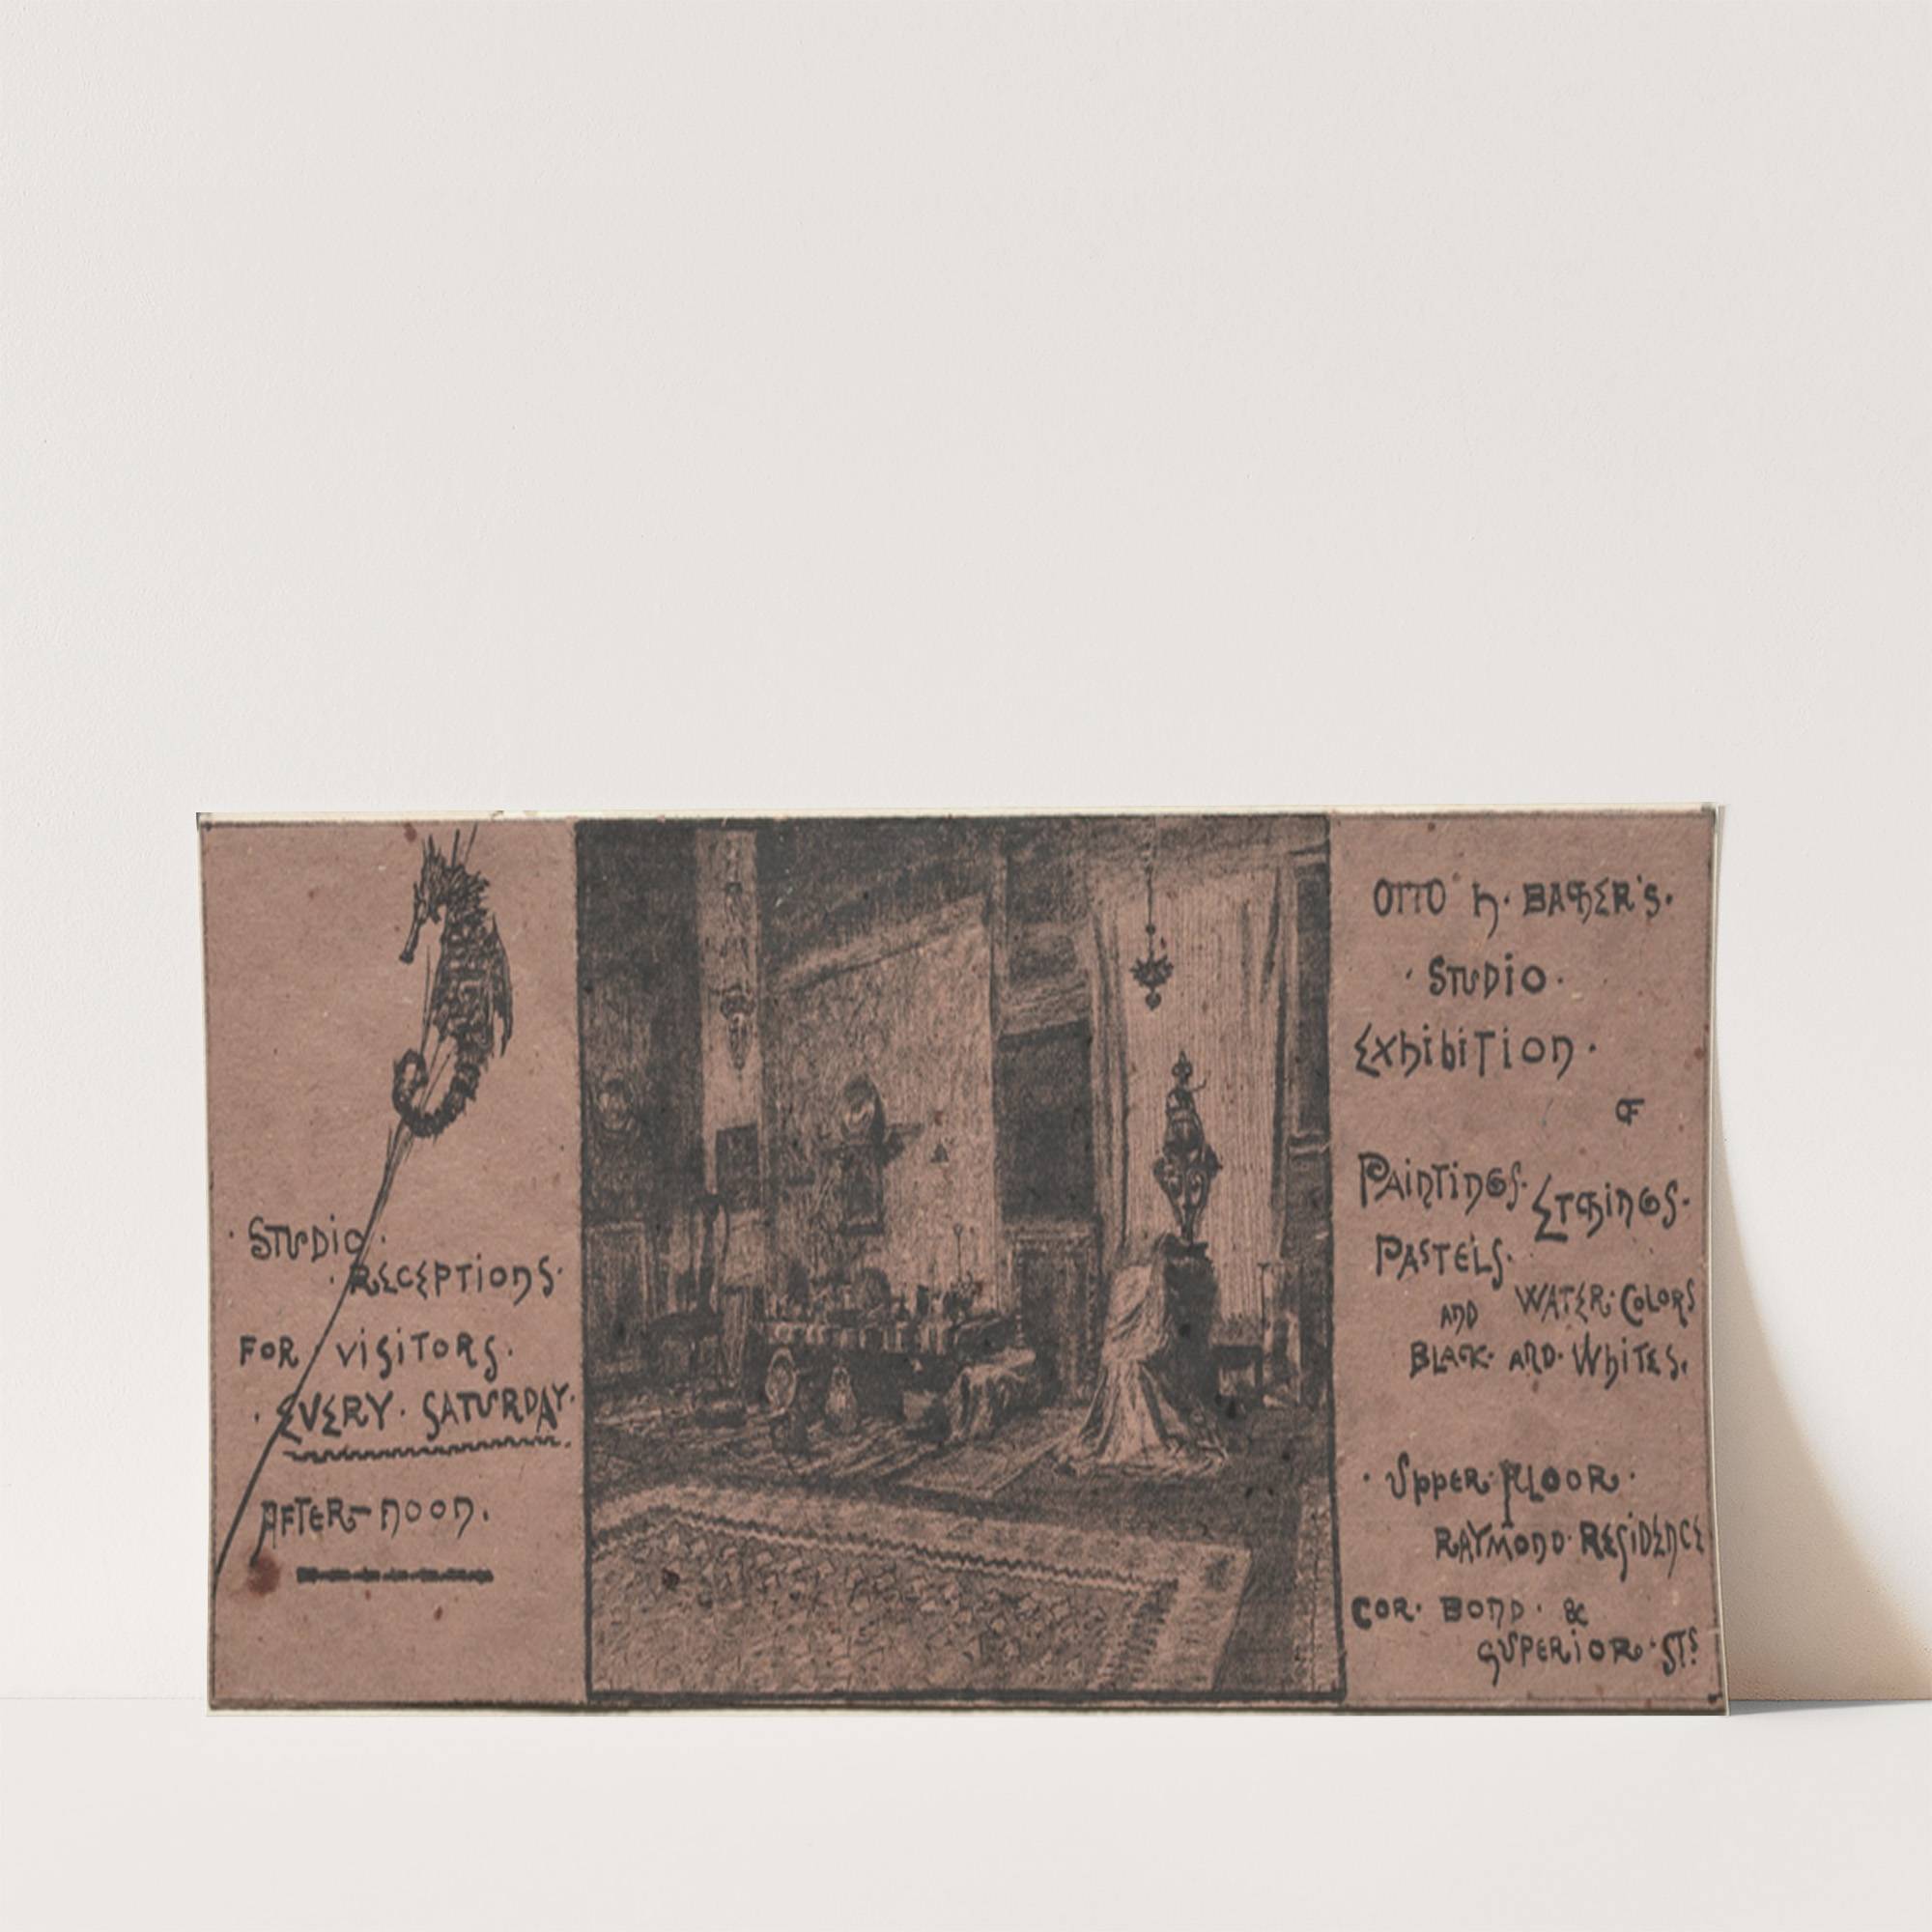 · STUDIO ·
· RECEPTIONS ·
FOR VISITORS ·
· EVERY · SATURDAY ·
AFTER-NOON.
OTTO H. BACHER'S ·
· STUDIO ·
EXHIBITION ·
OF
PAINTINGS · ETCHINGS ·
PASTELS ·
AND WATER · COLORS
BLACK · AND · WHITES.
· UPPER · FLOOR ·
RAYMOND · RESIDENCE
COR · BOND · &
SUPERIOR · STS